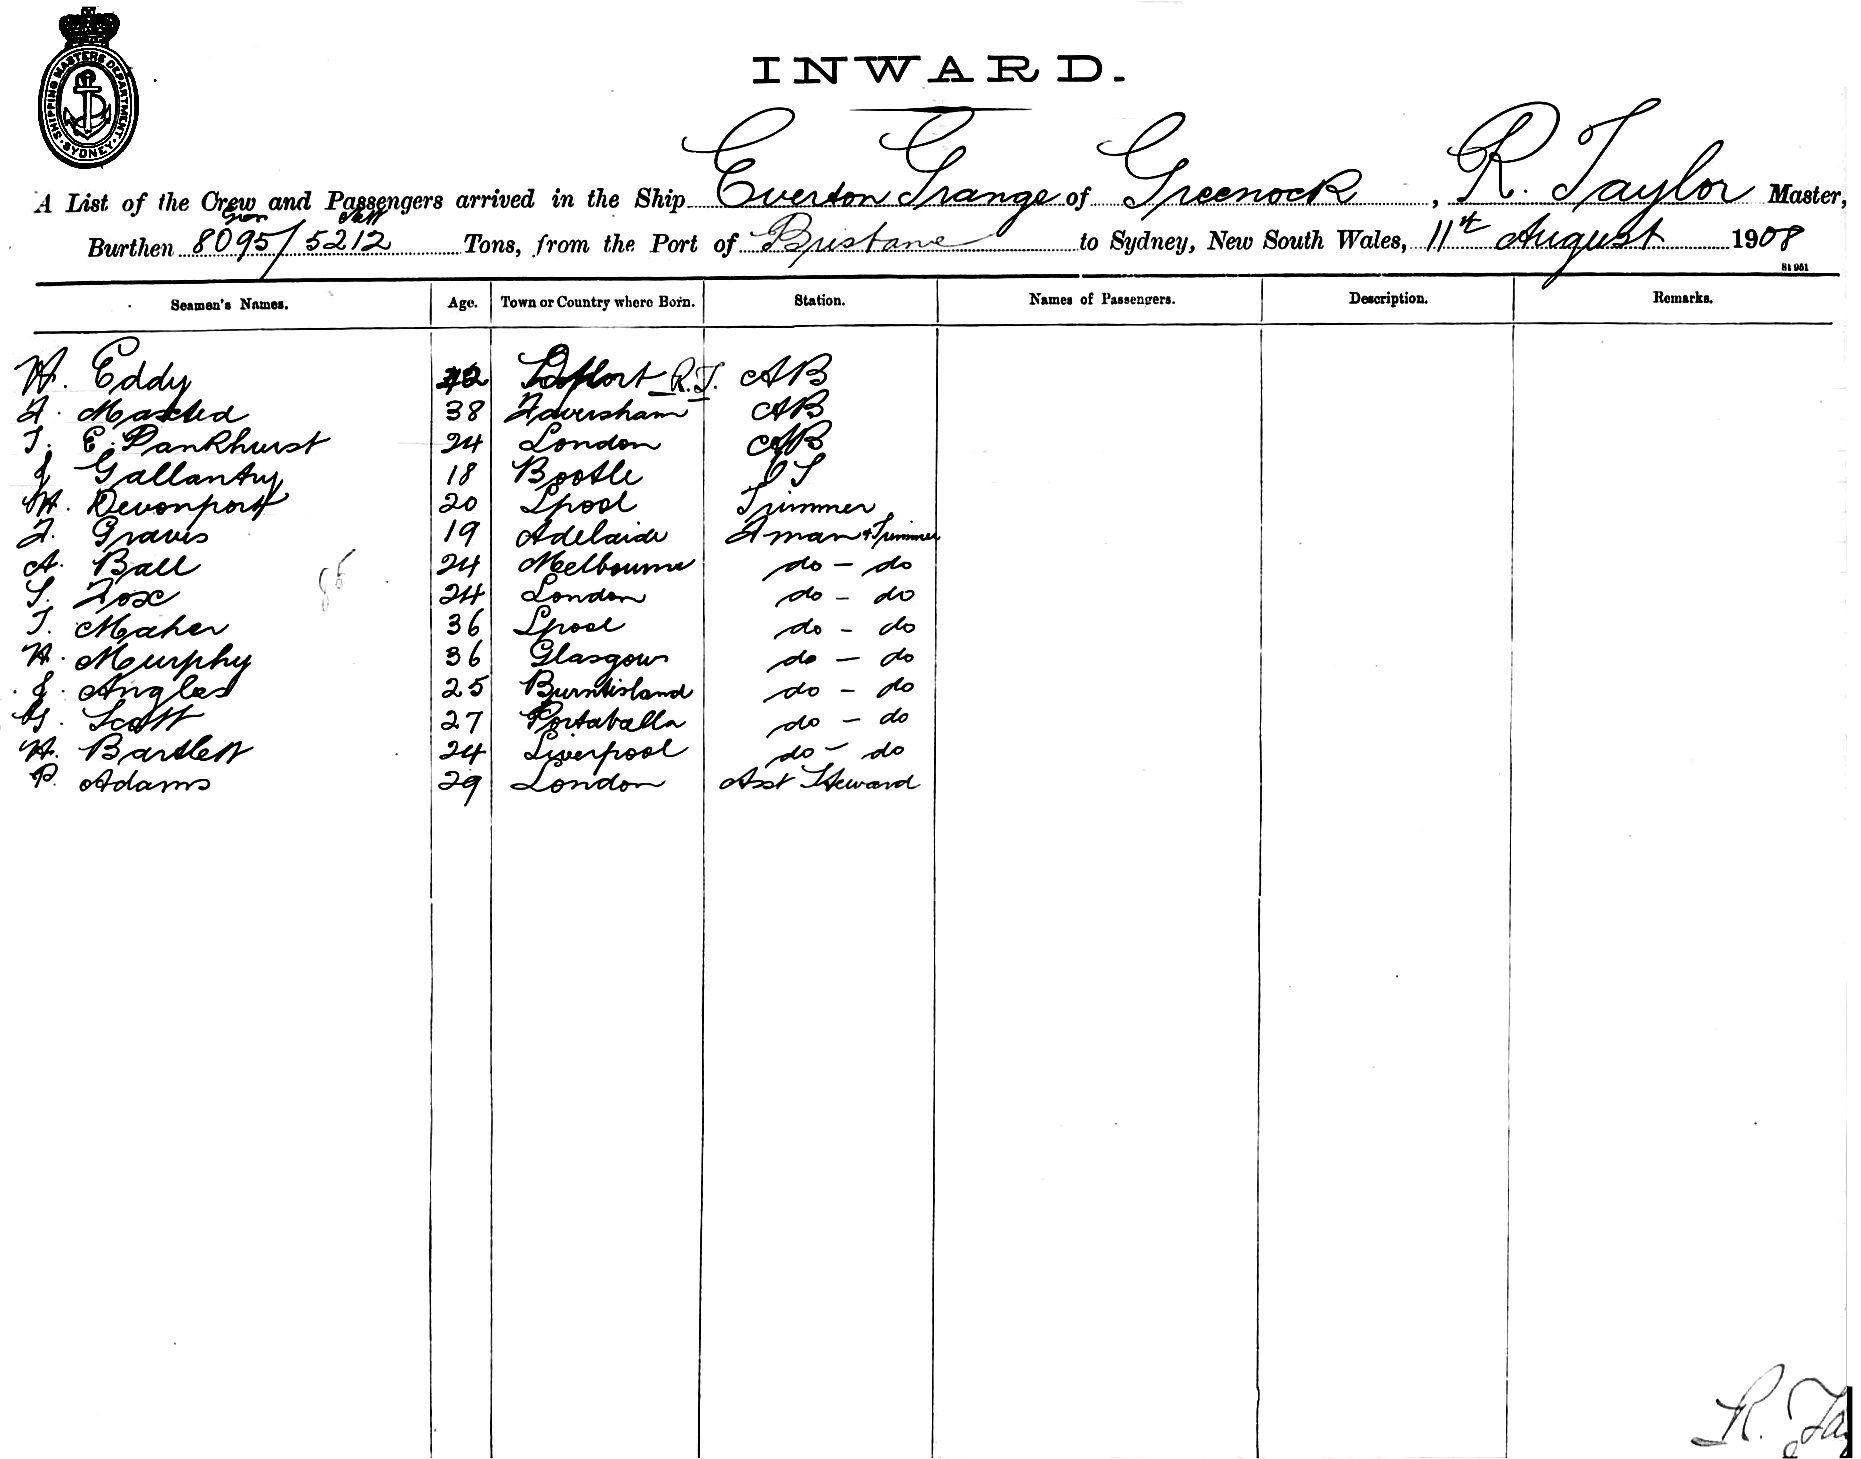 SHIPPING MASTERS DEPARTMENT
SYDNEY
INWARD.
A List of the Crew and Passengers arrived in the Ship Everton Grange of Greenock, R. Taylor Master,
Gross Nett
Burthen 8095/5212 Tons, from the Port of Brisbane to Sydney, New South Wales, 11th August 1908
81 951
Seamen's Names. Age. Town or Country where Born. Station. Names of Passengers. Description. Remarks.
W. Eddy 42 R.T. AB
F. Maxted 38 Faversham AB
T. E. Pankhurst 24 London AB
J Gallantry 18 Bootle OS
W. Devonport 20 Lpool Trimmer
F. Graves 19 Adelaide Fman & Trimmer
A. Ball 24 Melbourne do - do
S. Fox 24 London do - do
T. Maher 36 Lpool do - do
W. Murphy 36 Glasgow do - do
J. Angles 25 Burntisland do - do
G. Scott 27 Portabella do - do
W. Bartlett 24 Liverpool do - do
P. Adams 29 London Asst Steward
85
R. Ta